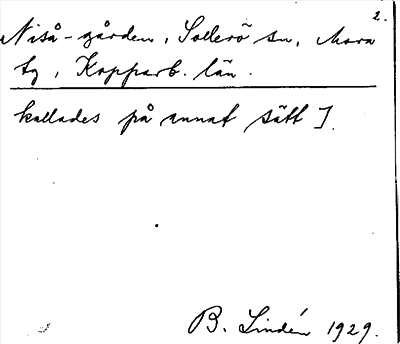 2.
Niså-gården, Sollerö sn, Mora
tg, Kopparb. län.
kallades på annat sätt].
B. Lindén 1929.